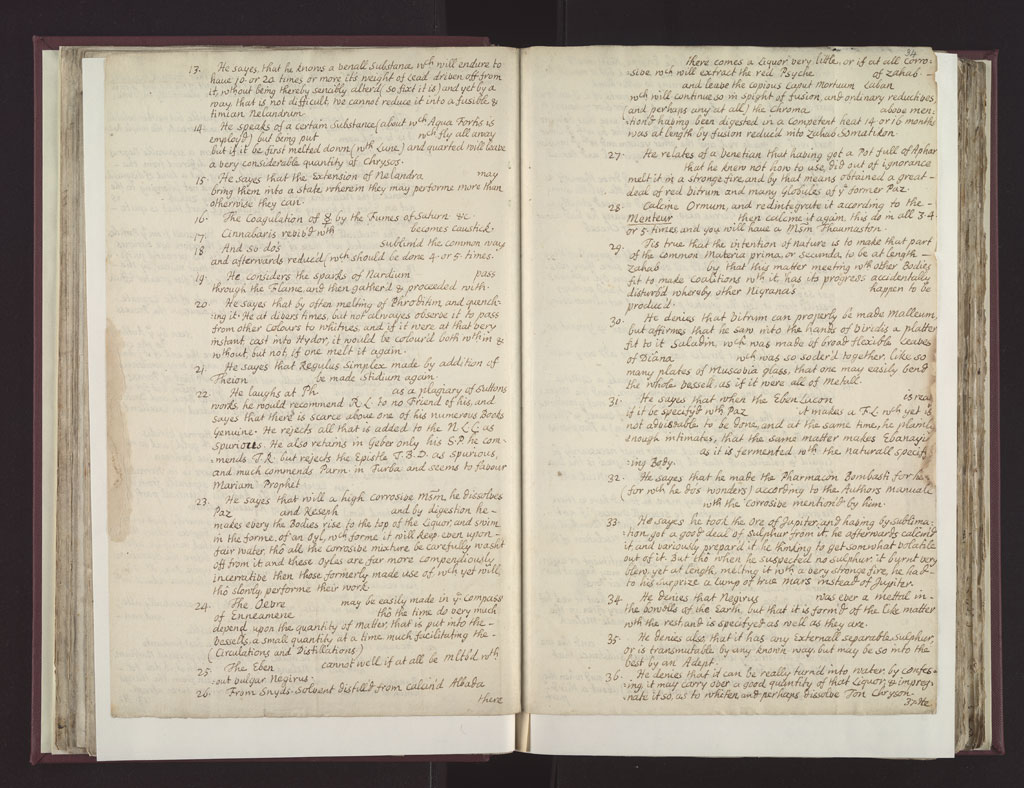 13. He sayes, that he knows a venall Substance wch will endure to
have 10 or 20 times or more its weight of Lead driven off from
it, without being thereby sencibly alter'd, so fixt it is) and yet by a
way, that is not difficult, we cannot reduce it into a fusible &
timian Nelandrum.
14. He speaks of a certain Substance (about wch Aqua Fortis is
employ'd) but being put wch fly all away
but if it be first melted down (with Lune) and quarted will leave
a very considerable quantity of Chrysos.
15 He sayes that the Extension of Nelandra may
bring them into a state wherein they may performe more than
otherwise they can
16. The Coagulation of ☿ by the Fumes of Saturn &c
17. Cinnabaris reviv'd wth becomes caustick.
18 And so dos sublim'd the common way
and afterwards reduced, wch should be done 4 or 5 times.
19. He considers the sparks of Nardium pass
through the Flame, and then gather'd & proceeded with.
20 He sayes that by often melting of Phrobitim, and quench-
ing it. He at divers times, but not alwayes observe it to pass
from other Colours to whitnes, and if it were at that very
instant cast into Hydor, it would be colour'd both within &
without, but not if one melt it again.
21 He sayes that Regulus Simplex made by addition of
Theion be made Stidium again.
22. He laughs at Ph as a plagiary of Suttons
works, he would recommend R L to no Friend of his, and
sayes that there is scarce above one of his numerous Books
Genuine. He rejects all that is added to the N L L as
spurious. He also retains in Geber only his S.P. he com-
mends T.R. but rejects the Epistle T.B.D. as spurious,
and much commends Parm. in Turba and seems to favour
Mariam Prophet
23. He sayes that with a high corrosive Msm, he dissolves
Paz and Keseph and by digestion he
makes every the Bodies rise to the top of the Liquor, and swim
in the forme, of an Oyl, wch forme it will keep even upon
fair water, tho all the corrosive mixture be carefully washt
off from it and these Oyles are far more compendiously
incerative then those formerly made use of wch yet will,
tho slowly, performe their work
24. The Oevre may be easily made in ye compass
of Enneamene tho the time do very much
depend upon the quantity of matter, that is put into the
vessells, a small quantity at a time much facilitating the
(Circulations and Distillations)
25 The Eben cannot well if at all be melted with
out vulgar Negirus.
26. From Snyds solvent distill'd from calcin'd Albada
there
34
there comes a Liquor very little, or if at all Corro-
sive wch will extract the red Psyche of zahab
and leave the copious Caput Mortuum Laban
wch will continue so in spight of fusion, and ordinary reductives
(and perhaps any at all) the Chroma above men-
tion'd having been digested in a Competent heat 14 or 16 months
was at length by fusion reduced into Zahab Somatikon.
27. He relates of a Venetian that having got a Pot full of Aphar
that he knew not how to use, did out of ignorance
melt it in a stronge fire, and by that means obtained a great
deal of red Vitrum and many Globules of ye former Paz.
28. Calcine Ormum, and redintegrate it according to the
Monteur then calcine it again, this do in all 3. 4.
or 5. times and you will have a Msm Thaumaston.
29. Tis true that the intention of Nature is to make that part
of the Common Materia prima, or secunda, to be at length
zahab by that this matter meeting with other Bodies
fit to make coalitions wth it, has its progress accidentally
disturb'd whereby other Nigrana's happen to be
produced.
30. He denies that Vitrum can properly be made Malleum,
but affirmes that he saw into the hands of Viridis a platter
fit to it Saladin, wch was made of broad flexible Leaves
of Diana wch was so soder'd together, like so
many plates of Muscovia glass, that one may easily bend
the whole vessell, as if it were all of Metall.
31. He sayes that when the Eben Lacon is real
if it be specify'd wth Paz it makes a F.L. wch yet is
not advisable to be done, and at the same time, he plainly
enough intimates, that the same matter makes Ebanayis
as it is fermented wth the naturall specify-
ing Body.
32. He sayes that he made the Pharmacon Bombasti for he
(for wch he dos wonders) according to the Authors Manuale
with the Corrosive mention'd by him.
33. He sayes he took the Ore of Jupiter, and having by sublima-
tion got a good deal of sulphur from it, he afterwards calcin'd
it, and variously prepar'd it, he thinking to get somwhat volatile
out of it. But tho when he suspected no Sulphur, it burnt very
blew, yet at length, melting it wth a very stronge fire, he had
to his surprize a lump of true Mars instead of Jupiter.
34 He denies that Negirus was ever a mettal in
the bowells of the Earth, but that it is form'd of the like matter
with the rest, and is specifyed as well as they are.
35. He denies also that it has any Externall separable Sulphur,
or is transmutable by any known way, but may be so into the
best by an Adept.
36. He denies that it can be really turn'd into water, by confess-
ing, it may carry over a good quantity of that Liquor, & impreg-
nate it so, as to whiten and perhaps dissolve Ton Chryson.
37. He